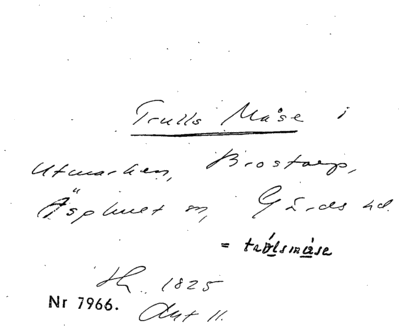 Trulls Måse i
Utmarken, Brostorp,
Äsphult sn, Gärds hd.
= trolsmåse
1825
Nr 7966. Akt 11.